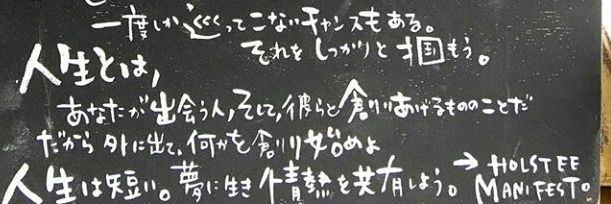 一度しか巡ってこないチャンスもある。
それをしっかりと掴もう。
人生とは,
あなたが出会う人,そして,彼らと創りあげるもののことだ
だから外に出て,何かを創り始めよ
人生は短い。夢に生き情熱を共有しよう。→HOLSTEE
MANIFESTO